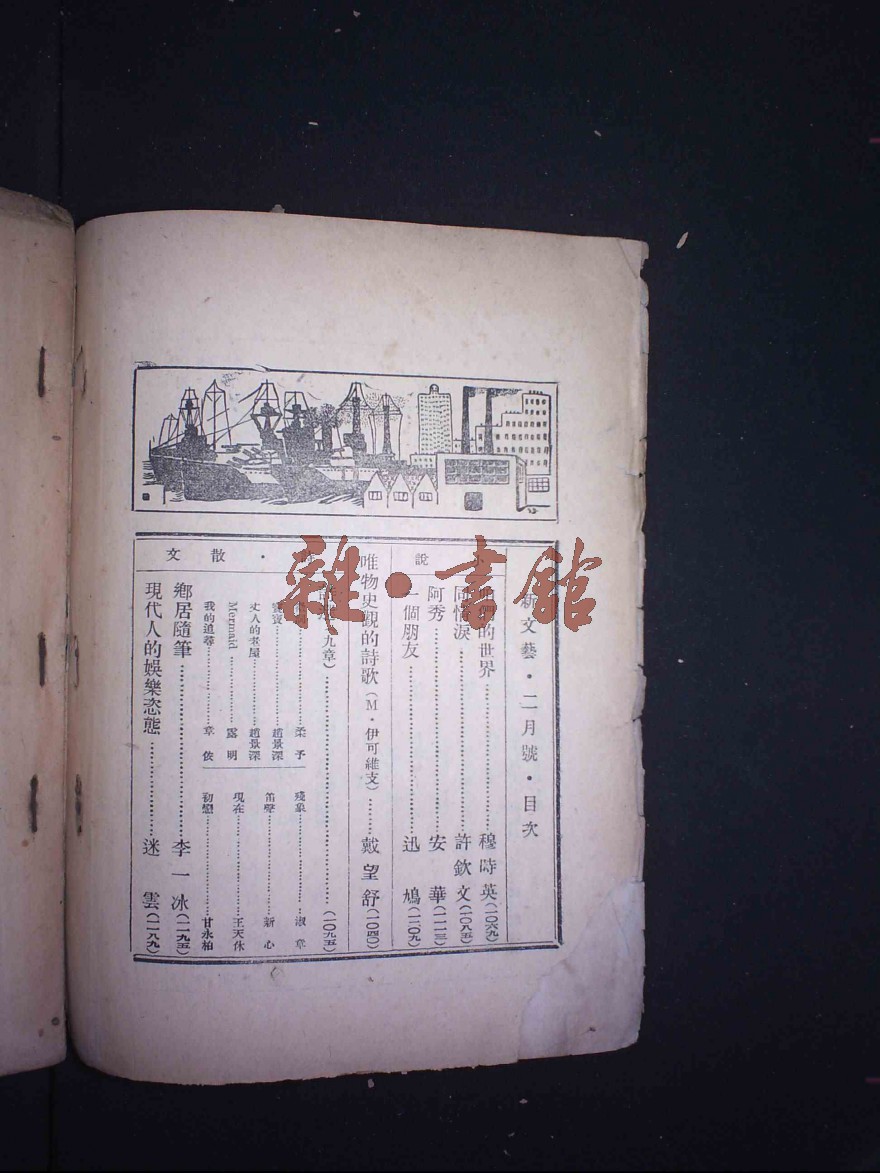 新文藝・二月號・目次
說
的世界……穆時英(一〇六九)
同情淚……許欽文(一〇八五)
阿秀……安華(一一一三)
一個朋友……迅鳩(一一〇九)
唯物史觀的詩歌(M・伊可維支)……戴望舒(一〇四〇)
九章)……(一〇九五)
……柔予
寶……趙景深
丈人的老屋……趙景深
Mermaid……露明
我的追尋……章依
殘象……淑章
笛聲……新心
現在……王天休
初戀……甘永柏
・散文
鄉居隨筆……李一冰(一一九五)
現代人的娛樂恣態……迷雲(一一八九)
雜・書館